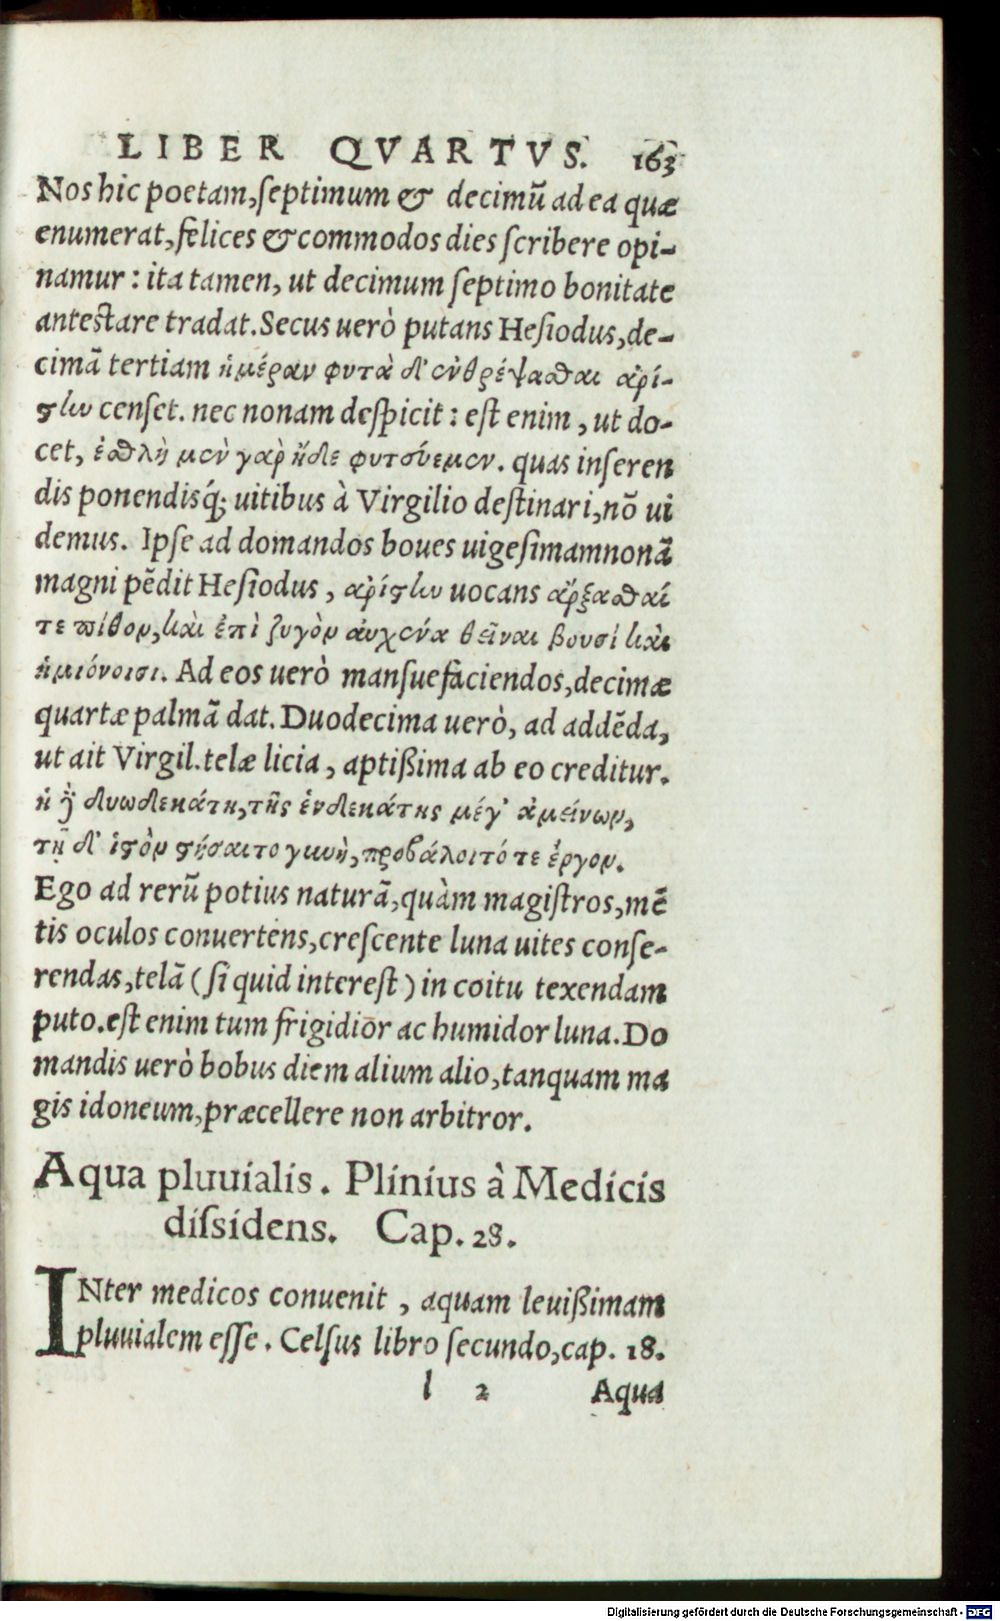 LIBER QVARTVS. 163
Nos hic poetam, ſeptimum & decimũ ad ea quæ
enumerat, felices & commodos dies ſcribere opi-
namur : ita tamen, ut decimum ſeptimo bonitate
anteſtare tradat. Secus uerò putans Heſiodus, de-
cimã tertiam ἡμέραν φυτὰ δ' ἐνθρέψαϑαι ἀρί-
ϛην cenſet. nec nonam deſpicit : eſt enim, ut do-
cet, ἐϑλὴ μὲν γαρ ἥδε φυτσύεμεν. quas inſeren
dis ponendisq́; uitibus à Virgilio deſtinari, nõ ui
demus. Ipſe ad domandos boues uigeſimamnonã
magni pẽdit Heſiodus, ἀρίϛην uocans ἄρξαϑαί
τε πίθου, καὶ ἐπὶ ζυγὸν αὐχένα θεῖναι βουσὶ καὶ
ἡμιόνοισι. Ad eos uerò manſuefaciendos, decimæ
quartæ palmã dat. Duodecima uerò, ad addẽda,
ut ait Virgil. telæ licia, aptißima ab eo creditur.
ἡ ȣ̃ δυωδεκάτη, τῆς ἑνδεκάτης μέγ' ἀμείνων,
τῇ δ' ἱϛὸν ϛήσαιτο γυνὴ, προβάλοιτό τε ἔργον.
Ego ad rerũ potius naturã, quàm magiſtros, mẽ
tis oculos conuertens, creſcente luna uites conſe-
rendas, telã (ſi quid intereſt) in coitu texendam
puto. eſt enim tum frigidior ac humidor luna. Do
mandis uerò bobus diem alium alio, tanquam ma
gis idoneum, præcellere non arbitror.
Aqua pluuialis. Plinius à Medicis
diſsidens. Cap. 28.
INter medicos conuenit, aquam leuißimam
pluuialem eſſe. Celſus libro ſecundo, cap. 18.
l 2 Aqua
Digitalisierung gefördert durch die Deutsche Forschungsgemeinschaft - DFG